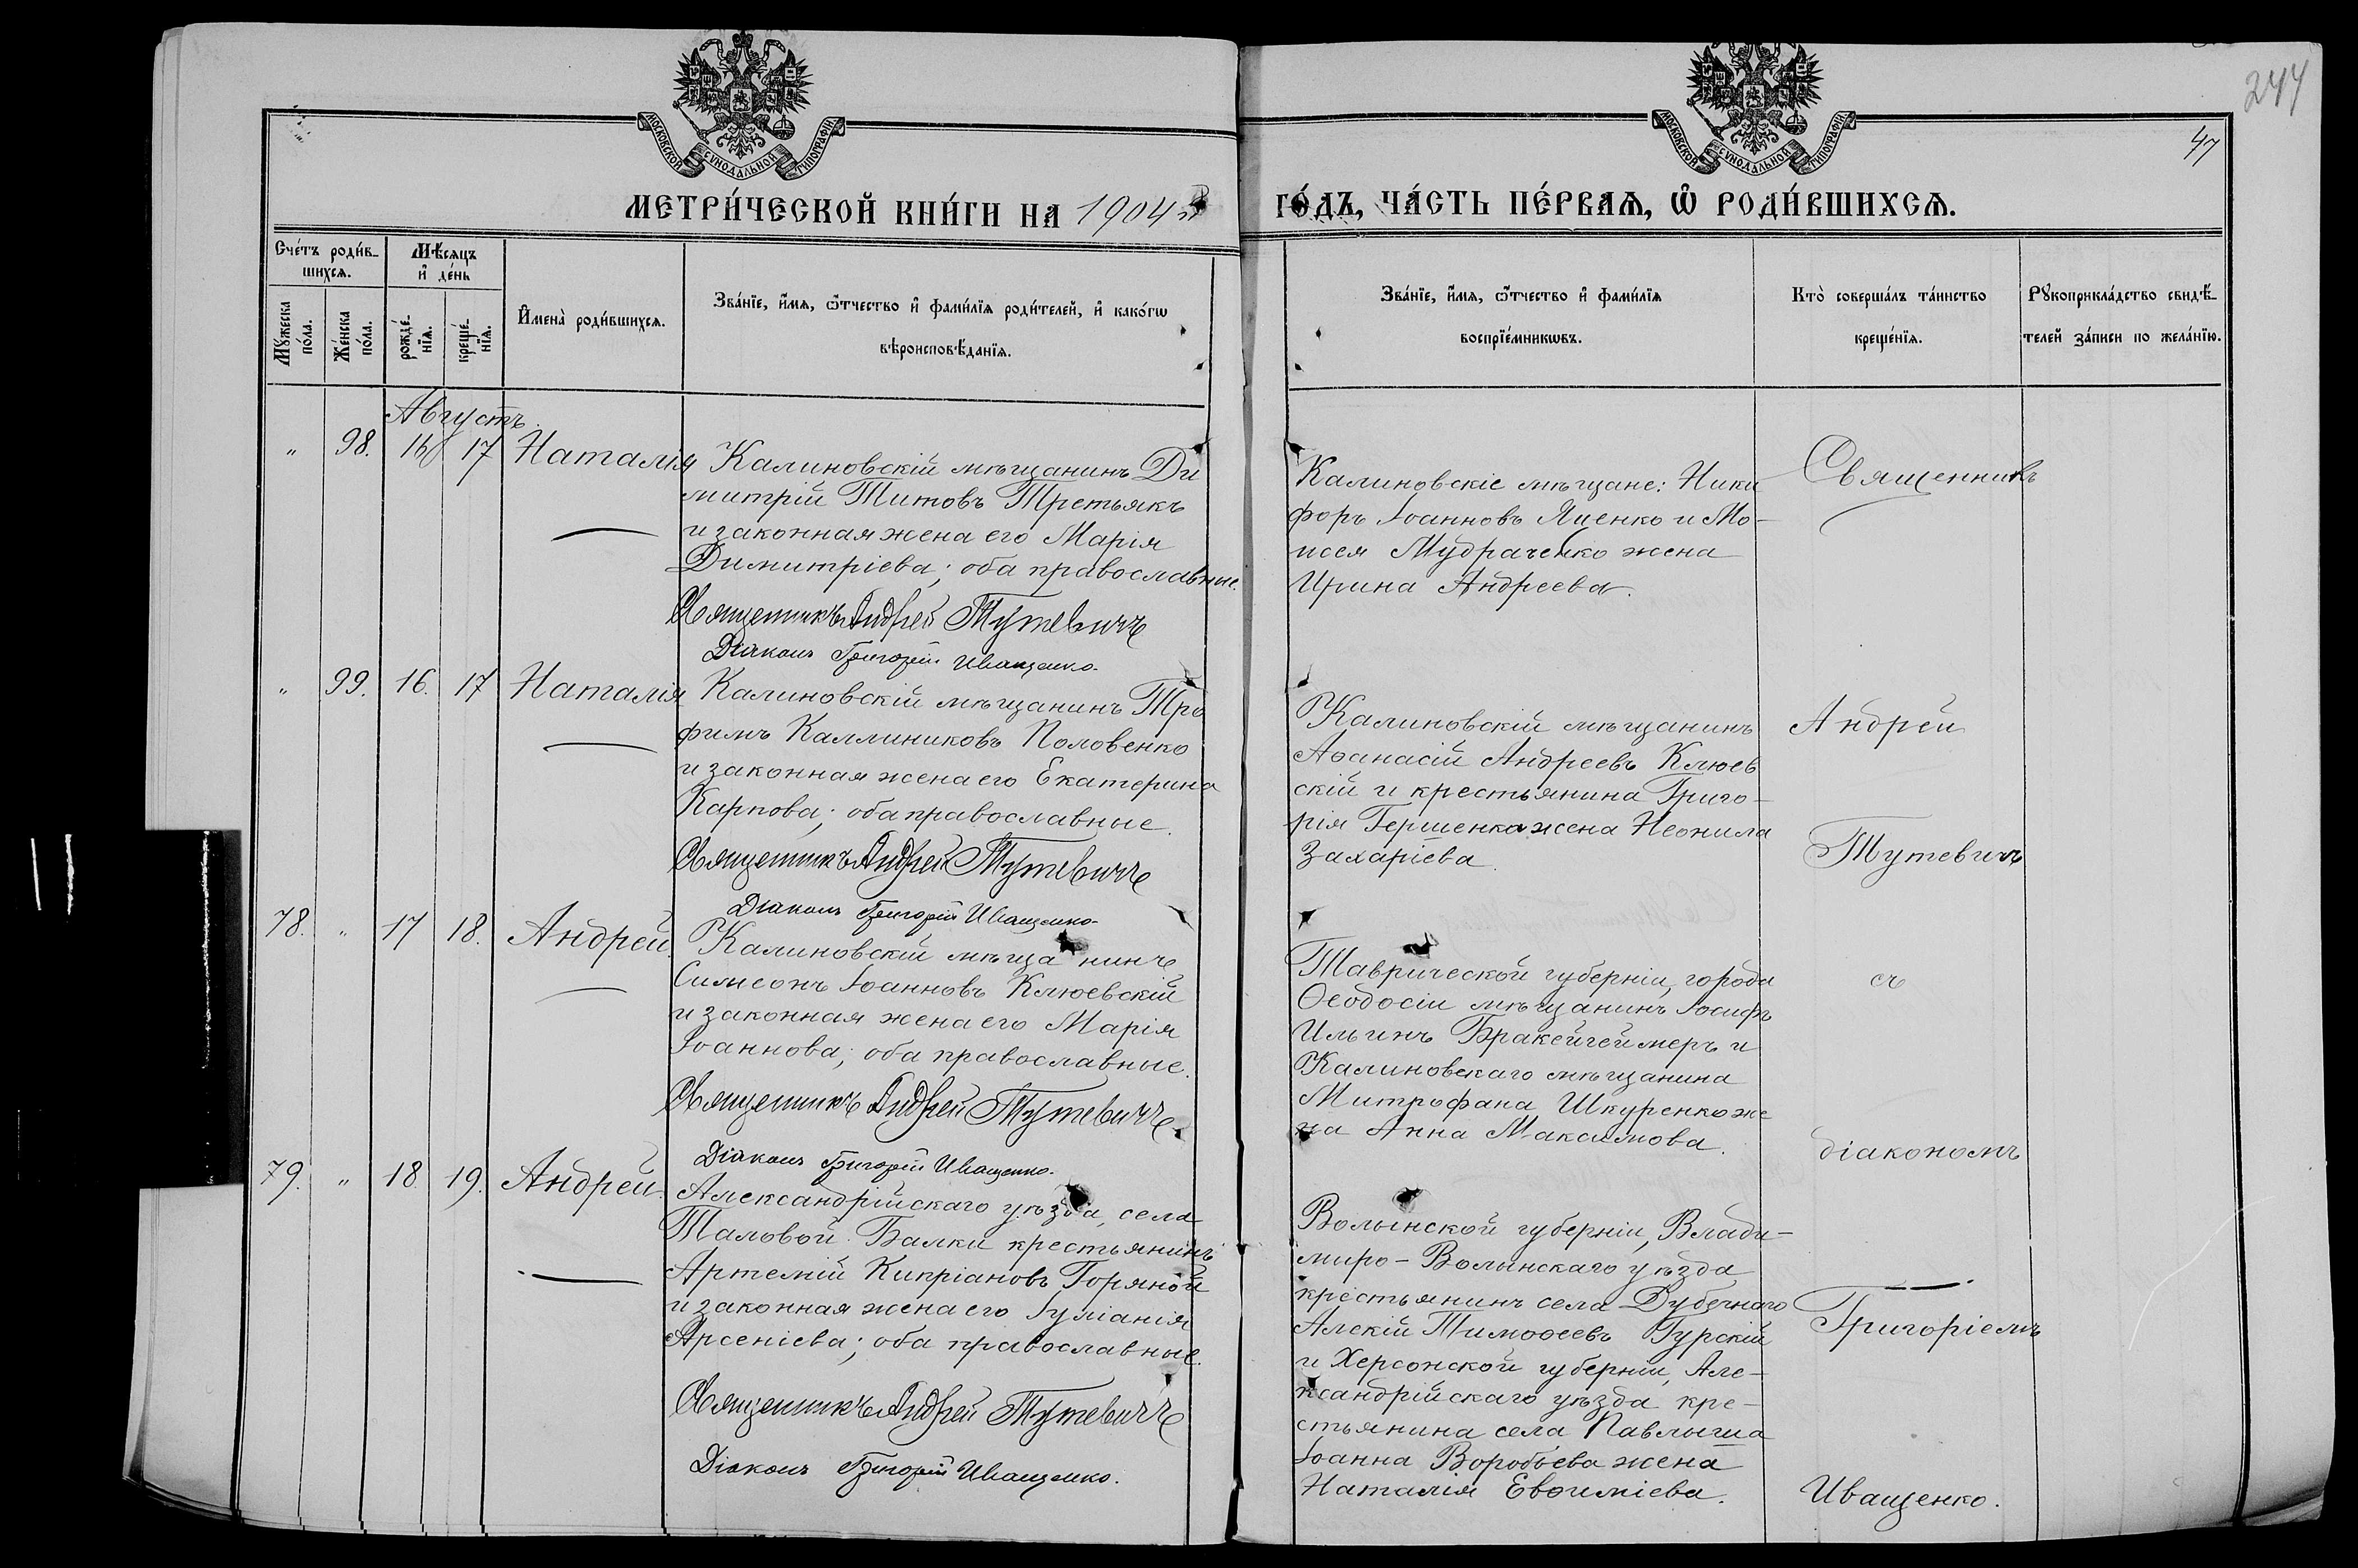 244
47
МОСКОВСКОЙ СѴНОДАЛЬНОЙ ТИПОГРАФІИ
МОСКОВСКОЙ СѴНОДАЛЬНОЙ ТИПОГРАФІИ
МЕТРИ́ЧЕСКОЙ КНИ́ГИ НА 1904й ГО́ДЪ, ЧА́СТЬ ПЕ́РВАѦ, Ѡ҆ РОДИ́ВШИХСѦ.
Сче́тъ роди́в-
шихсѧ.
Мѣ́сѧцъ
и҆ де́нь
Мꙋ́жеска
по́ла.
Же́нска
по́ла.
рожде́-
нїѧ.
креще́-
нїѧ.
И҆мена̀ роди́вшихсѧ.
Зва́нїе, и҆́мѧ, ѻ҆́тчество и҆ фами́лїѧ роди́телей, и҆ како́гѡ
вѣроисповѣ́данїѧ.
Зва́нїе, и҆́мѧ, ѻ҆́тчество и҆ фами́лїѧ
воспрїе́мникѡвъ.
Кто̀ соверша́лъ та́инство
креще́нїѧ.
Рꙋкоприкла́дство свидѣ́-
телей за́писи по жела́нїю.
Августъ.
" 98. 16 17 Наталія
Калиновскій мѣщанинъ Ди
митрій Титовъ Третьякъ
и законная жена его Марія
Димитріева; оба православные.
Священникъ Андрей Тутевичъ
Діаконъ Григорій Иващенко.
Калиновскіе мѣщане: Ники
форъ Іоанновъ Яценко и Мо-
исея Мудраченко жена
Ирина Андреева.
" 99. 16. 17 Наталія
Калиновскій мѣщанинъ Тро
фимъ Каллиниковъ Половенко
и законная жена его Екатерина
Карпова; оба православные.
Священникъ Андрей Тутевичъ
Діаконъ Григорій Иващенко.
Калиновскій мѣщанинъ
Аѳанасій Андреевъ Клюев
скій и крестьянина Григо-
рія Гершенка жена Неонила
Захаріева.
78. " 17 18. Андрей.
Калиновскій мѣща нинъ
Симеонъ Іоанновъ Клюевскій
и законная жена его Марія
Іоаннова; оба православные.
Священникъ Андрей Тутевичъ
Діаконъ Григорій Иващенко.
Таврической губерніи, города
Ѳеодосіи мѣщанинъ Іосифъ
Ильинъ Бракейгеймеръ и
Калиновскаго мѣщанина
Митрофана Шкуренко же
на Анна Максимова.
79. " 18. 19. Андрей.
Александрійскаго уѣзда, села
Таловой Балки крестьянинъ
Артемій Кипріановъ Горяной
и законная жена его Іуліанія
Арсеніева; оба православные.
Священникъ Андрей Тутевичъ
Діаконъ Григорій Иващенко.
Волынской губерніи, Влади-
миро-Волынскаго уѣзда
крестьянинъ села Дубечнаго
Алексій Тимоѳеевъ Гурскій
и Херсонской губерніи, Але-
ксандрійскаго уѣзда кре-
стьянина села Павлыша
Іоанна Воробьева жена
Наталія Евѳиміева.
Священникъ
Андрей
Тутевичъ
съ
діакономъ
Григоріемъ
Иващенко.